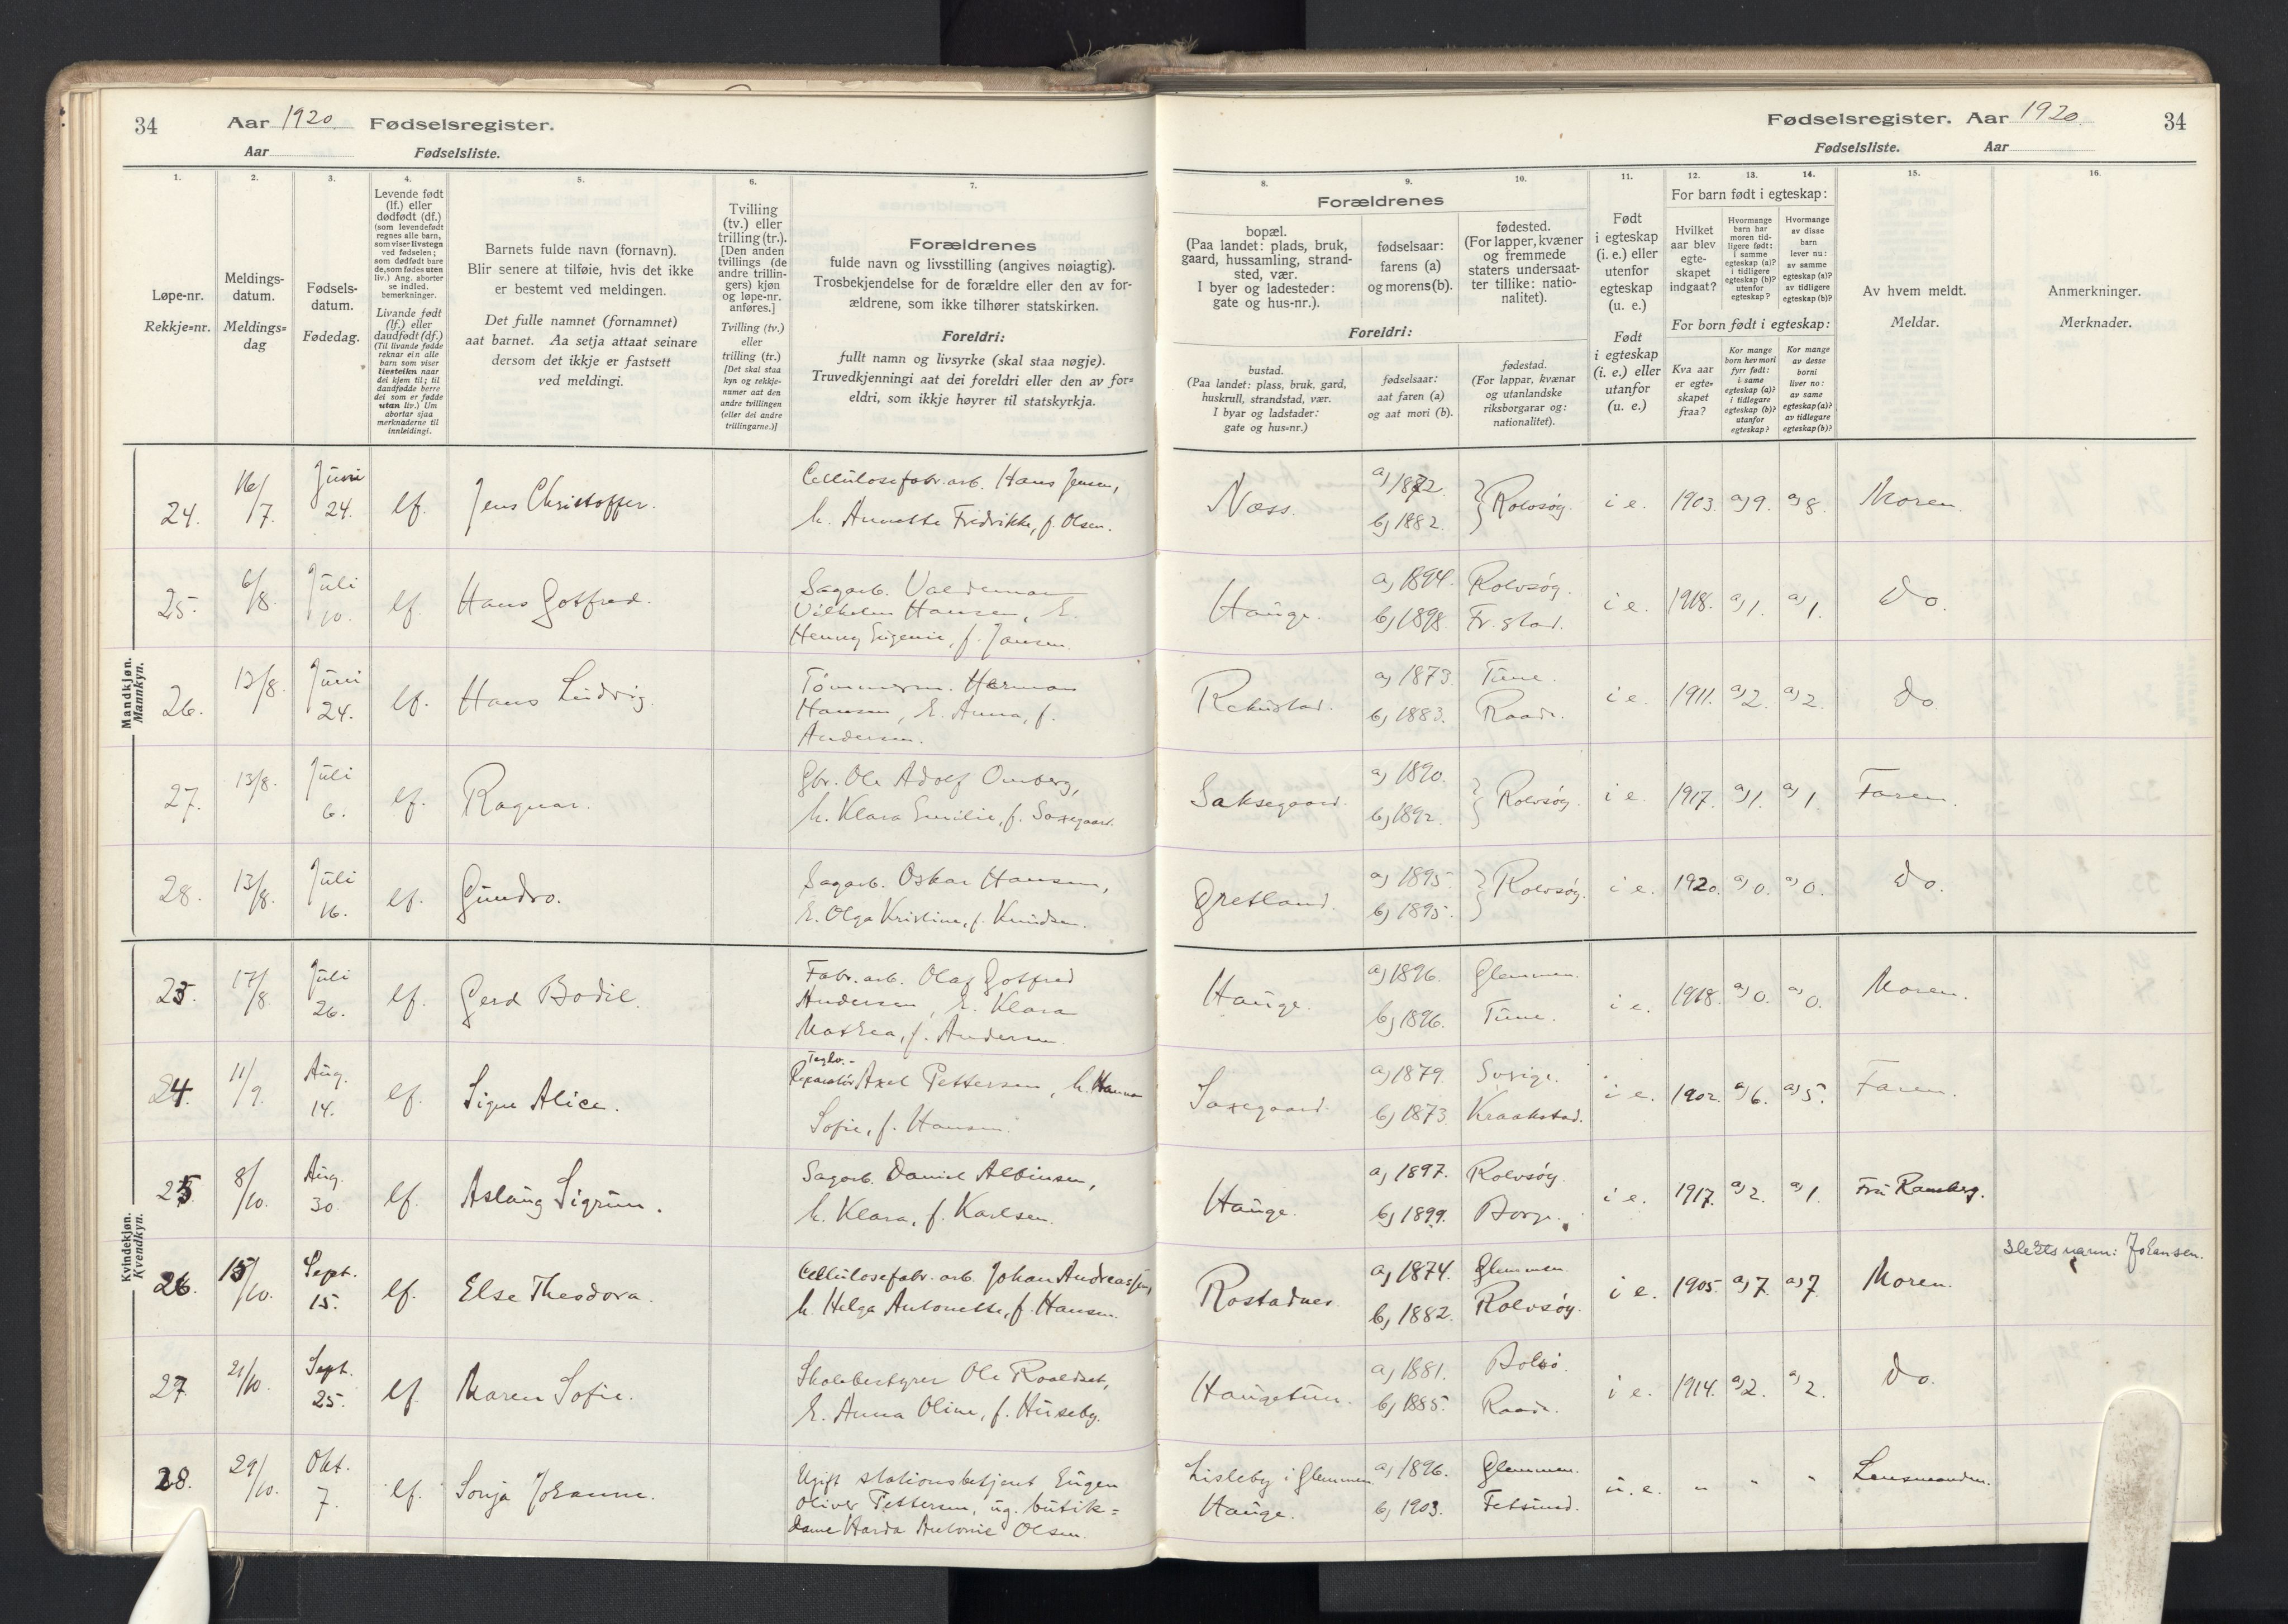 34 Aar 1920. Fødselsregister.
Aar Fødselsliste.
Fødselsregister. Aar 1920. 34
Fødselsliste. Aar
1. 2. 3. 4. 5. 6. 7.
Løpe-nr.
Rekkje=nr.
Meldings-
datum.
Meldings=
dag
Fødsels-
datum.
Fødedag.
Levende født
(lf.) eller
dødfødt (df.)
(som levendefødt
regnes alle barn,
som viser livstegn
ved fødselen;
som dødfødt bare
de, som fødes uten
liv.) Ang. aborter
se indled.
bemerkninger.
Livande født
(lf.) eller
daudfødt (df.)
(Til livande fødde
reknar ein alle
barn som viser
livsteikn naar
dei kjem til; til
daudfødde berre
dei som er fødde
utan liv.) Um
abortar sjaa
merknaderne til
innleidingi.
Barnets fulde navn (fornavn).
Blir senere at tilføie, hvis det ikke
er bestemt ved meldingen.
Det fulle namnet (fornamnet)
aat barnet. Aa setja attaat seinare
dersom det ikkje er fastsett
ved meldingi.
Tvilling
(tv.) eller
trilling (tr.).
[Den anden
tvillings (de
andre trillin-
gers) kjøn
og løpe-nr.
anføres.]
Tvilling (tv.)
eller
trilling (tr.)
[Det skal staa
kyn og rekkje-
numer aat den
andre tvillingen
(eller dei andre
trillingarne.)]
Forældrenes
fulde navn og livsstilling (angives nøiagtig).
Trosbekjendelse for de forældre eller den av for-
ældrene, som ikke tilhører statskirken.
Foreldri:
fullt namn og livsyrke (skal staa nøgje).
Truvedkjenningi aat dei foreldri eller den av for=
eldri, som ikkje høyrer til statskyrkja.
8. 9. 10. 11. 12. 13. 14. 15. 16.
Forældrenes
bopæl.
(Paa landet: plads, bruk,
gaard, hussamling, strand-
sted, vær.
I byer og ladesteder:
gate og hus-nr.).
fødselsaar:
farens (a)
og morens (b).
fødested.
(For lapper, kvæner
og fremmede
staters undersaat-
ter tillike: natio-
nalitet).
Foreldri:
bustad.
(Paa landet: plass, bruk, gard,
huskrull, strandstad, vær.
I byar og ladstader:
gate og hus=nr.)
fødselsaar:
aat faren (a)
og aat mori (b).
fødestad.
(For lappar, kvænar
og utanlandske
riksborgarar og:
nationalitet).
Født
i egteskap
(i. e.) eller
utenfor
egteskap
(u. e.)
Født
i egteskap
(i. e.) eller
utanfor
(u. e.)
For barn født i egteskap:
Hvilket
aar blev
egte-
skapet
indgaat?
Hvormange
barn har
moren tid-
ligere født:
i samme
egteskap (a)?
i tidligere
egteskap (b)?
utenfor
egteskap?
Hvormange
av disse
barn
lever nu:
av samme
egteskap (a)?
av tidligere
egteskap (b)?
For born født i egteskap:
Kva aar
er egte=
skapet
fraa?
Kor mange
born hev mori
fyrr født:
i same
egteskap (a)?
i tidlegare
egteskap (b)?
utanfor
egteskap?
Kor mange
av desse
borni
liver no:
av same
egteskap (a)?
av tidlegare
egteskap (b)?
Av hvem meldt.
Meldar.
Anmerkninger.
Merknader.
Mandkjøn.
Mannkyn.
24. 16/7. Juni 24. lf. Jens Christoffer. Cellulosefabr. arb. Hans Jensen,
h. Annette Fredrikke, f. Olsen.
Næss. a) 1872. b) 1882. } Rolvsøy. i e. 1903. a) 9. a) 8. Moren.
25. 6/8. Juli 10. lf. Hans Gotfred. Sagarb. Valdemar
Vilhelm Hansen, h.
Henny Eugenie, f. Jansen.
Hauge. a) 1894. Rolvsøy. b) 1898. Fr.stad. i e. 1918. a) 1. a) 1. Do.
26. 13/8. Juni 24. lf. Hans Ludvig. Tømmerm. Herman
Hansen, h. Anna, f.
Andersen.
Rekustad. a) 1873. Tune. b) 1883. Raade. i e. 1911. a) 2. a) 2. Do.
27. 13/8. Juli 6. lf. Ragnar. Gbr. Ole Adolf Omberg,
h. Klara Emilie, f. Saxegaard.
Saksegaard. a) 1890. b) 1892. } Rolvsøy. i e. 1917. a) 1. a) 1. Faren.
28. 13/8. Juli 16. lf. Gundro. Sagarb. Oskar Hansen,
h. Olga Kristine, f. Knudsen.
Gretland. a) 1895. b) 1895. } Rolvsøy. i e. 1920. a) 0. a) 0. Do.
Kvindekjøn.
Kvendkyn.
23. 17/8 Juli 26. lf. Gerd Bodil. Fabr. arb. Olaf Gotfred
Andersen, h. Klara
Mathea, f. Andersen.
Hauge. a) 1896. Glemmen. b) 1896. Tune. i e. 1918. a) 0. a) 0. Moren.
24. 11/9. Aug. 14. lf. Signe Alice. Teglv.-
Reparatør Axel Pettersen, h. Hanna
Sofie, f. Hansen.
Saxegaard. a) 1879. Sverige. b) 1873. Kraakstad. i e. 1902. a) 6. a) 5. Faren.
25. 8/10. Aug. 30. lf. Aslaug Sigrun. Sagarb. Daniel Albinsen,
h. Klara, f. Karlsen.
Hauge. a) 1897. Rolvsøy. b) 1899. Borge. i e. 1917. a) 2. a) 1. Fru Ramberg.
26. 15/10. Sept. 15. lf. Else Theodora. Cellulosefabr. arb. Johan Andreassen,
h. Helga Antonette, f. Hansen.
Rostadnes. a) 1874. Glemmen. b) 1882. Rolvsøy. i e. 1905. a) 7. a) 7. Moren. Slektsnavn: Johansen.
27. 21/10. Sept. 25. lf. Maren Sofie. Skolebestyrer Ole Roaldset,
h. Anna Oline, f. Huseby.
Haugetun. a) 1881. Bolsø. b) 1885. Raade. i e. 1914. a) 2. a) 2. Do.
28. 29/10. Okt. 7. lf. Sonja Johanne. Ugift stationsbetjent Eugen
Oliver Pettersen, ug. butik=
dame Harda Antonie Olsen.
Lisleby i Glemmen a) 1896. Glemmen.
Hauge. b) 1903. Fetsund. u. e. " " " Lensmanden.